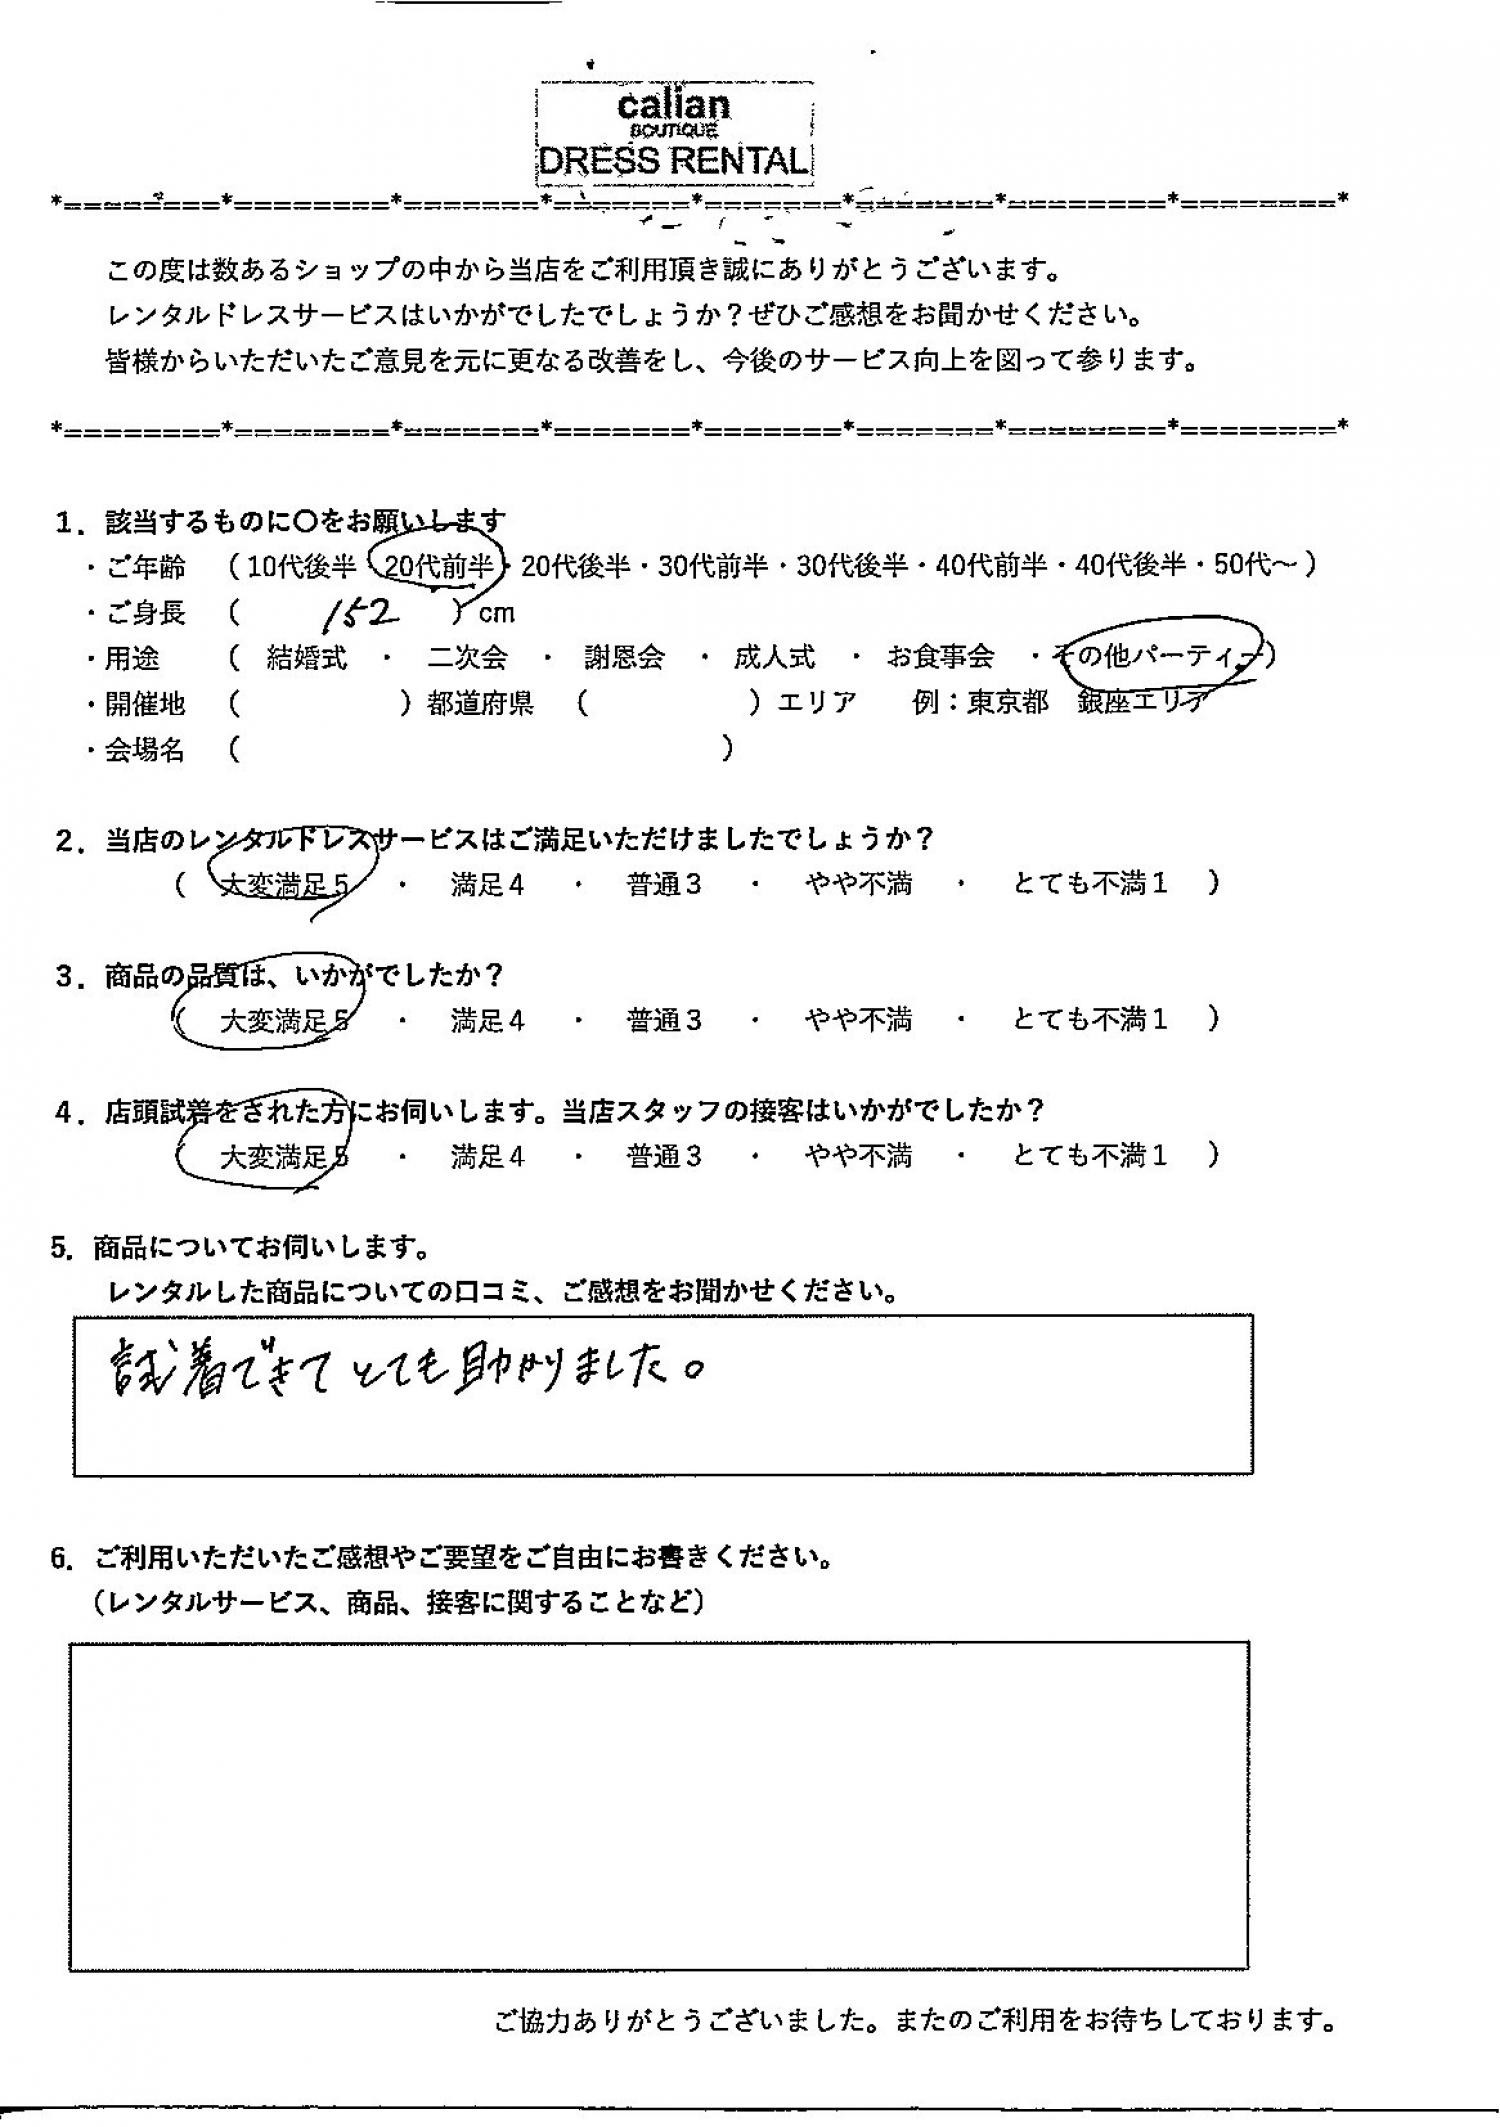 calian
BOUTIQUE
DRESS RENTAL
*========*========*=======*=======*=======*=======*========*========*
この度は数あるショップの中から当店をご利用頂き誠にありがとうございます。
レンタルドレスサービスはいかがでしたでしょうか？ぜひご感想をお聞かせください。
皆様からいただいたご意見を元に更なる改善をし、今後のサービス向上を図って参ります。
*========*========*=======*=======*=======*=======*========*========*
1．該当するものに〇をお願いします
・ご年齢 （10代後半・20代前半・20代後半・30代前半・30代後半・40代前半・40代後半・50代〜）
・ご身長 （ 152 ）cm
・用途 （ 結婚式 ・ 二次会 ・ 謝恩会 ・ 成人式 ・ お食事会 ・その他パーティー）
・開催地 （ ）都道府県 （ ）エリア 例：東京都 銀座エリア
・会場名 （ ）
2．当店のレンタルドレスサービスはご満足いただけましたでしょうか？
（ 大変満足5 ・ 満足4 ・ 普通3 ・ やや不満 ・ とても不満1 ）
3．商品の品質は、いかがでしたか？
（ 大変満足5 ・ 満足4 ・ 普通3 ・ やや不満 ・ とても不満1 ）
4．店頭試着をされた方にお伺いします。当店スタッフの接客はいかがでしたか？
（ 大変満足5 ・ 満足4 ・ 普通3 ・ やや不満 ・ とても不満1 ）
5．商品についてお伺いします。
レンタルした商品についての口コミ、ご感想をお聞かせください。
試着できてとても助かりました。
6．ご利用いただいたご感想やご要望をご自由にお書きください。
（レンタルサービス、商品、接客に関することなど）
ご協力ありがとうございました。またのご利用をお待ちしております。